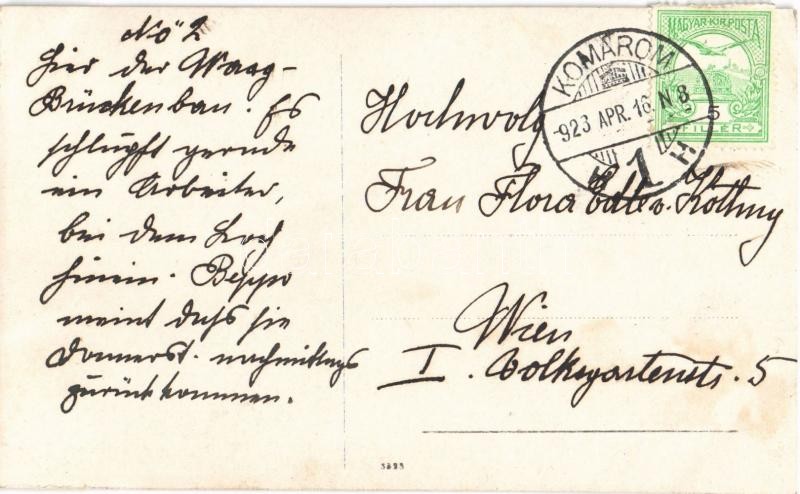 No 2
Hier der Waag-
Brückenbau. Es
schlupft gerade
ein Arbeiter,
bei dem Loch
hinein. Beppo
meint dass sie
Donnerst. nachmittags
zurückkommen.
Hochwolg
Frau Flora Edle v.
Wien
I. Volksgartenstr. 5
MAGYAR KIR. POSTA
5
FILLÉR
KOMÁROM
923 APR. 16. N 8
1
H
3293